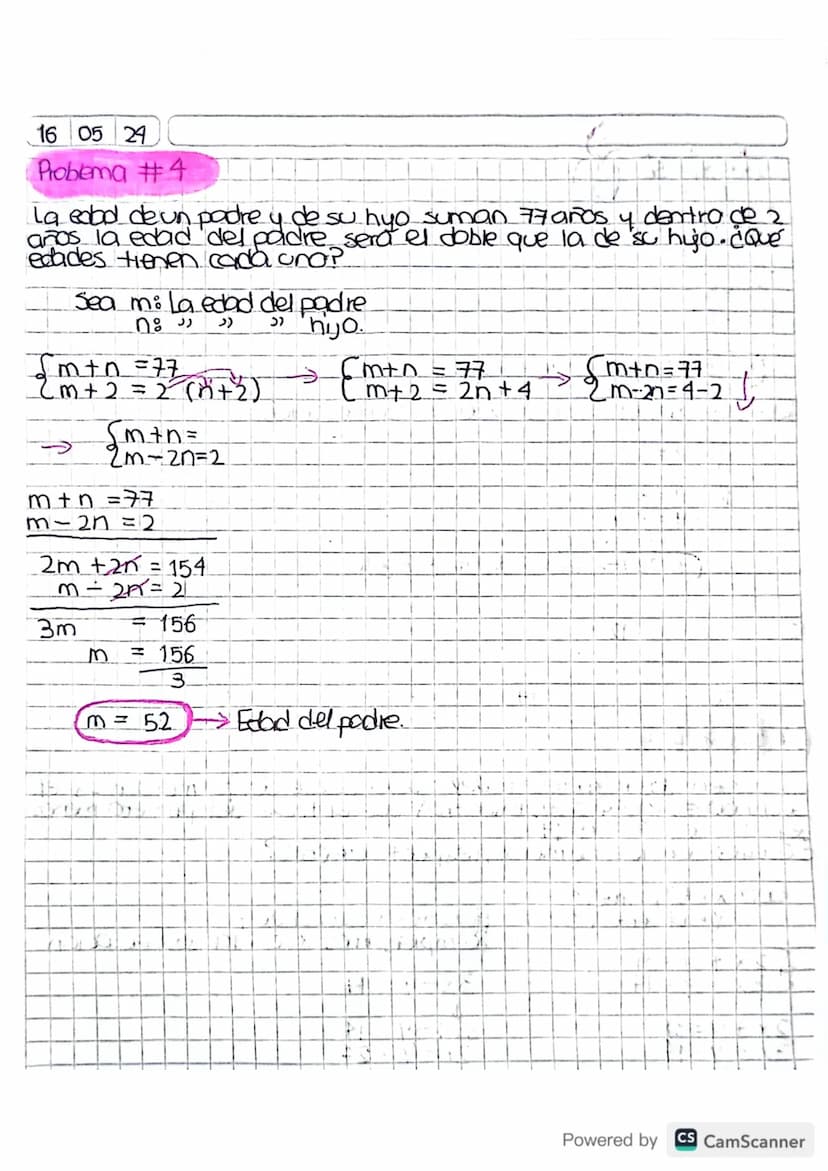 16 05 24
Problema #4
La edad de un padre y de su hijo suman 77 años y dentro de 2
años la edad del padre será el doble que la de su hijo. ¿Qué
edades tienen cada uno?
Sea m: La edad del padre
n: " " " hijo.
{m+n = 77 → {m+n = 77 → {m+n=77
{m+2 = 2 (n+2) {m+2 = 2n+4 {m-2n=4-2 ↓
→ {m+n=
{m-2n=2
m+n = 77
m-2n = 2
2m + 2n = 154
m - 2n = 2
3m = 156
m = 156
3
m = 52 → Edad del padre.
Powered by CS CamScanner